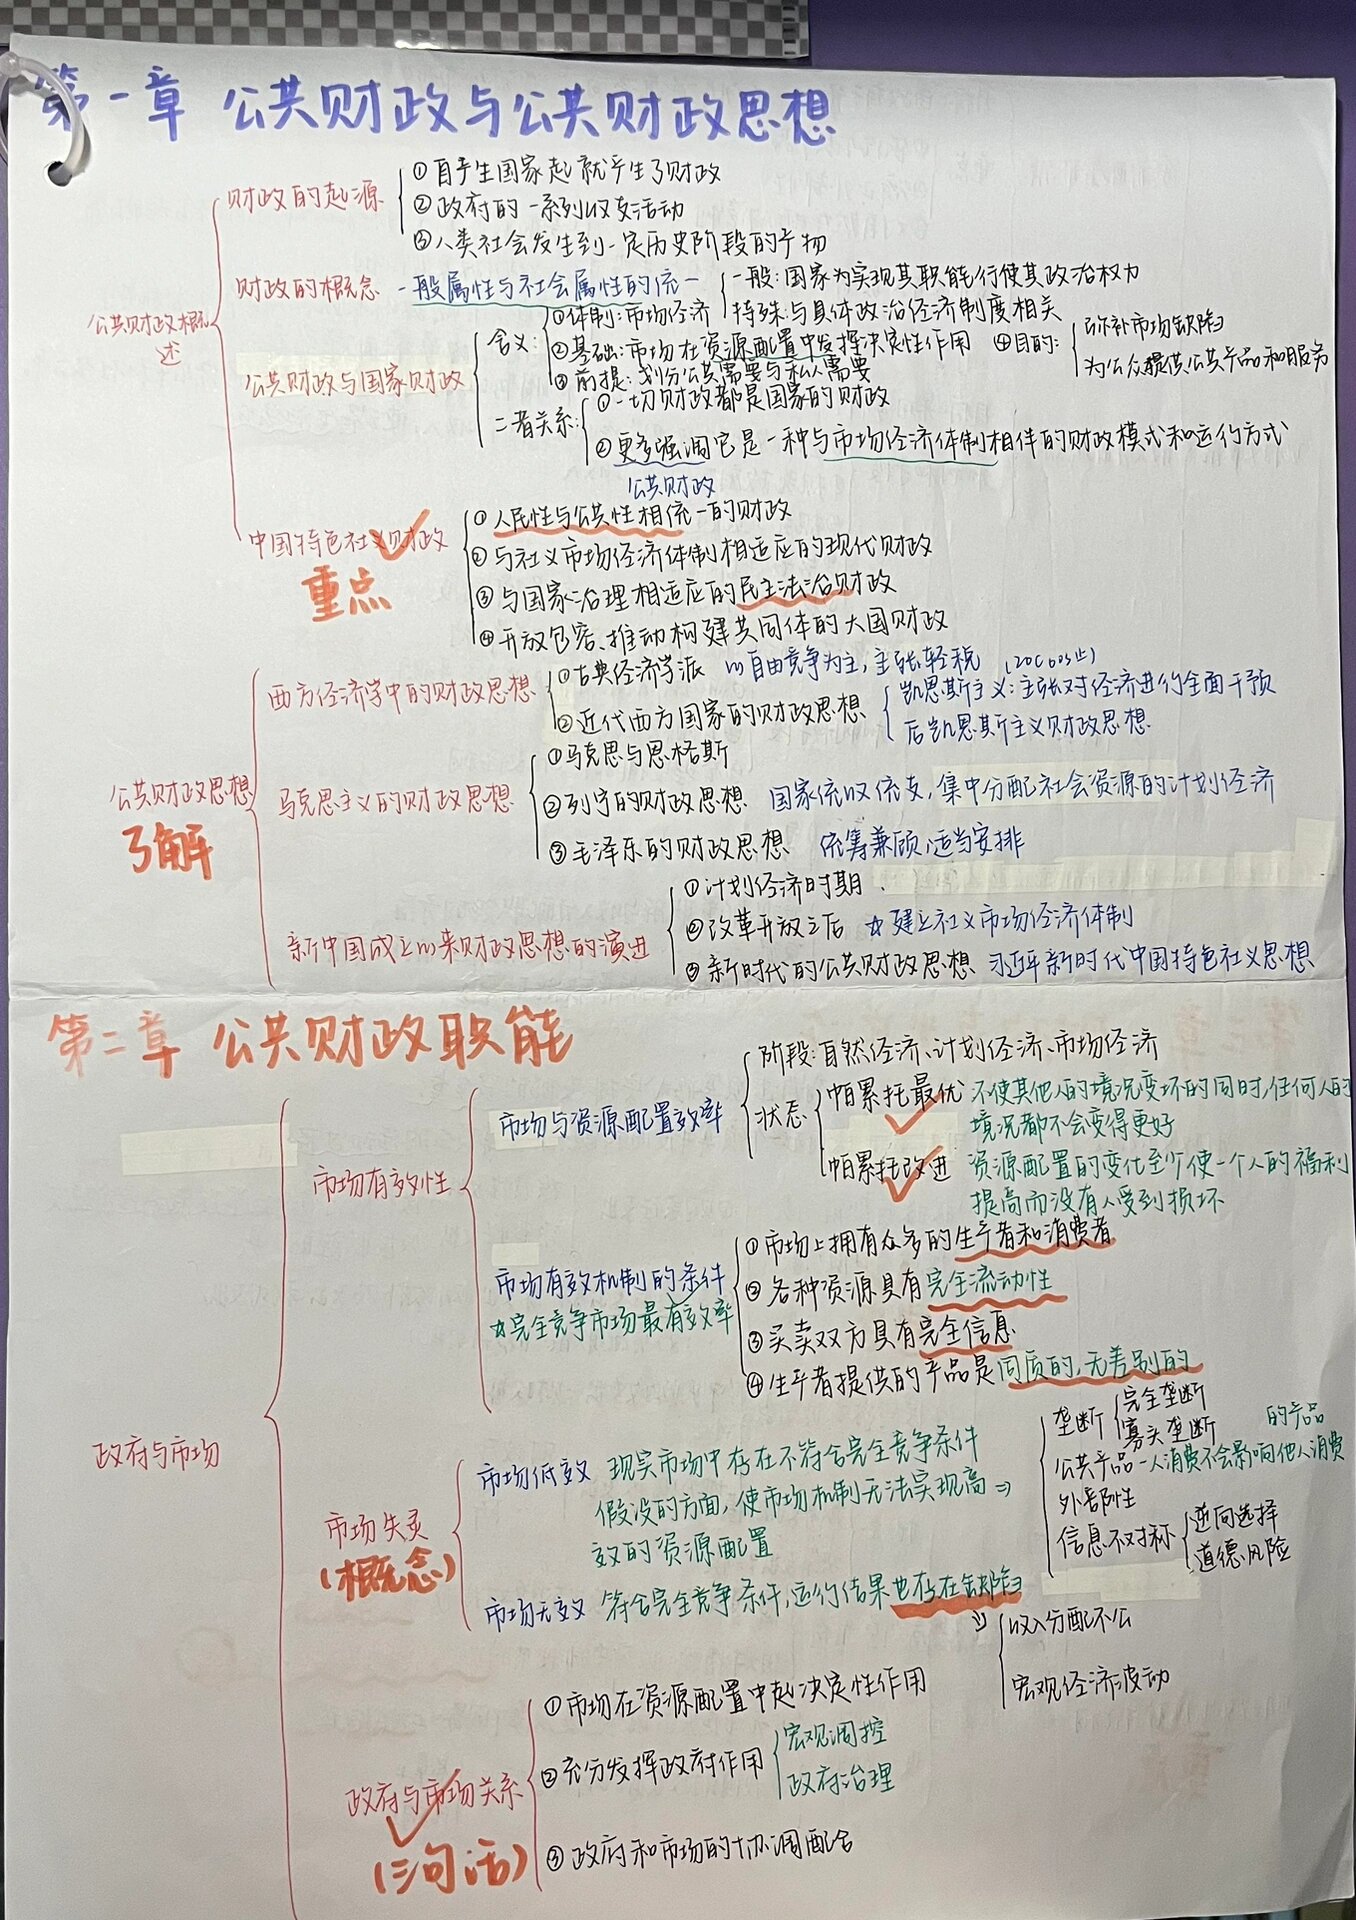 第一章 公共财政与公共财政思想
公共财政概述
财政的起源
①自产生国家起就产生了财政
②政府的一系列收支活动
③人类社会发生到一定历史阶段的产物
财政的概念 一般属性与社会属性的统一
一般:国家为实现其职能行使其政治权力
特殊:与具体政治经济制度相关
公共财政与国家财政
含义:
①体制:市场经济
②基础:市场在资源配置中发挥决定性作用
③前提:划分公共需要与私人需要
④目的:
弥补市场缺陷
为公众提供公共产品和服务
二者关系:
①一切财政都是国家的财政
②更多强调它是一种与市场经济体制相伴的财政模式和运行方式
公共财政
中国特色社义财政
重点
①人民性与公共性相统一的财政
②与社义市场经济体制相适应的现代财政
③与国家治理相适应的民主法治财政
④开放包容、推动构建共同体的大国财政
公共财政思想
了解
西方经济学中的财政思想
①古典经济学派 以自由竞争为主,主张轻税
②近代西方国家的财政思想
(20C60s止)
凯恩斯主义:主张对经济进行全面干预
后凯恩斯主义财政思想
马克思主义的财政思想
①马克思与恩格斯
②列宁的财政思想 国家统收统支,集中分配社会资源的计划经济
③毛泽东的财政思想 统筹兼顾,适当安排
新中国成立以来财政思想的演进
①计划经济时期
②改革开放之后 ☆建立社义市场经济体制
③新时代的公共财政思想 习近平新时代中国特色社义思想
第二章 公共财政职能
政府与市场
市场有效性
市场与资源配置效率
阶段:自然经济、计划经济、市场经济
状态
帕累托最优 不使其他人的境况变坏的同时,任何人的
境况都不会变得更好
帕累托改进 资源配置的变化至少使一个人的福利
提高而没有人受到损坏
市场有效机制的条件
☆完全竞争市场最有效率
①市场上拥有众多的生产者和消费者
②各种资源具有完全流动性
③买卖双方具有完全信息
④生产者提供的产品是同质的,无差别的
市场失灵
(概念)
市场低效 现实市场中存在不符合完全竞争条件
假设的方面,使市场机制无法实现高⇒
效的资源配置
垄断
完全垄断
寡头垄断
的产品
公共产品 一人消费不会影响他人消费
外部性
信息不对称
逆向选择
道德风险
市场无效 符合完全竞争条件,运行结果也存在缺陷
⇓
收入分配不公
宏观经济波动
政府与市场关系
(三句话)
①市场在资源配置中起决定性作用
②充分发挥政府作用
宏观调控
政府治理
③政府和市场的协调配合